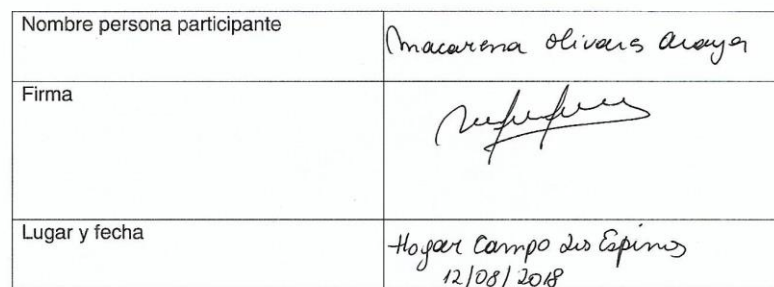 Nombre persona participante
Macarena Olivares Araya
Firma
Lugar y fecha
Hogar Campo Los Espinos
12/08/2018